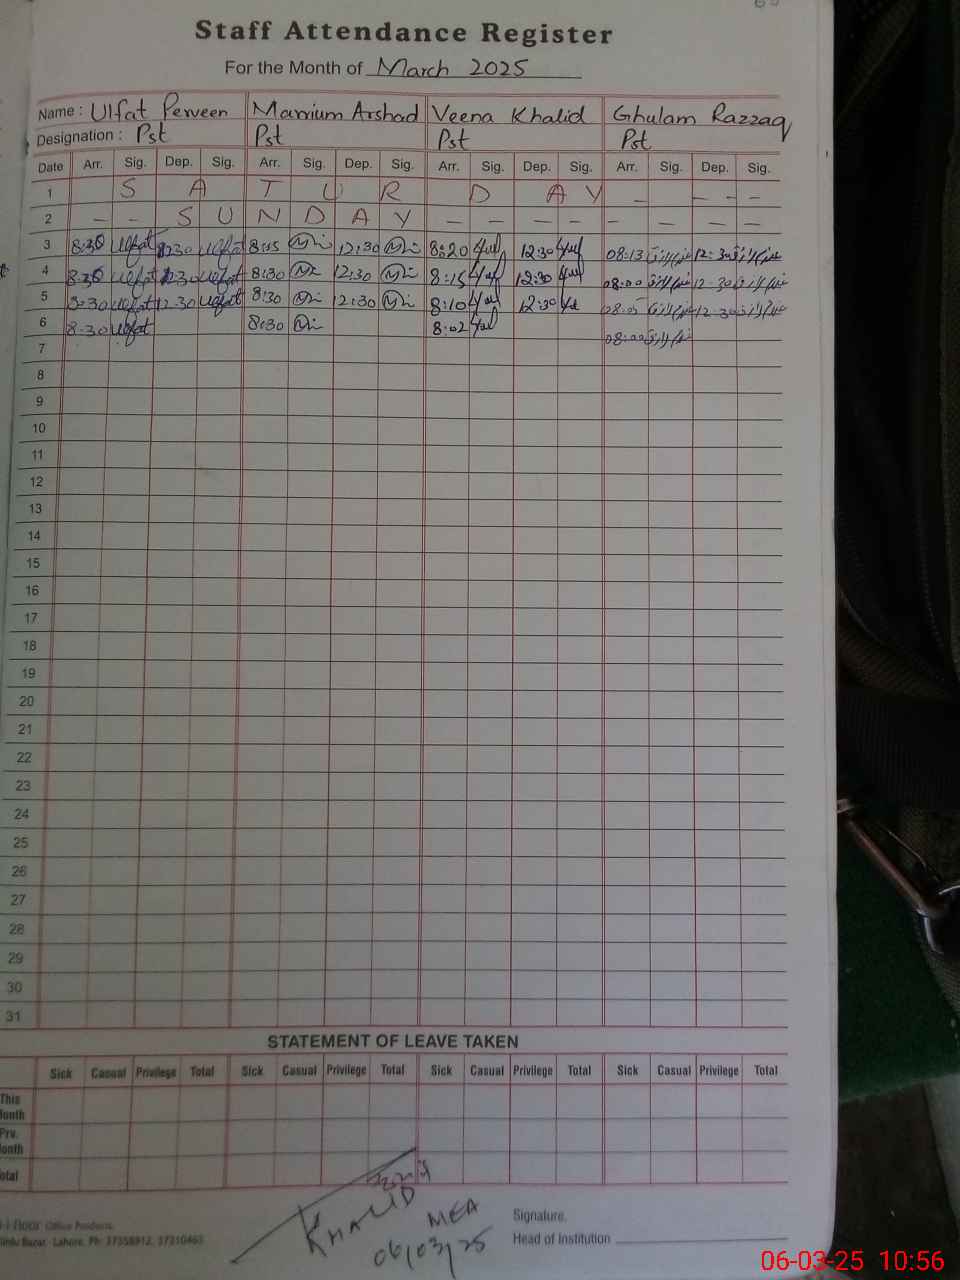 Staff Attendance Register
For the Month of March 2025
Name : Ulfat Perveen Mamium Arshad Veena Khalid Ghulam Razzaq
Designation : Pst Pst Pst Pst
Date Arr. Sig. Dep. Sig. Arr. Sig. Dep. Sig. Arr. Sig. Dep. Sig. Arr. Sig. Dep. Sig.
1 S A T U R D A Y - - - -
2 - - S U N D A Y - - - - - - -
3 8:30 Ulfat 12:30 Ulfat 8:15 12:30 8:20 12:30 08:13 12:30
4 8:30 Ulfat 12:30 Ulfat 8:30 12:30 8:15 12:30 08:00 12:30
5 8:30 Ulfat 12:30 Ulfat 8:30 12:30 8:10 12:30 08:05 12:30
6 8:30 Ulfat 8:30 8:02 08:00
7
8
9
10
11
12
13
14
15
16
17
18
19
20
21
22
23
24
25
26
27
28
29
30
31
STATEMENT OF LEAVE TAKEN
Sick Casual Privilege Total Sick Casual Privilege Total Sick Casual Privilege Total Sick Casual Privilege Total
This
Month
Prv.
Month
Total
KHALID
MEA
06/03/25
Signature.
Head of Institution
Office Products.
Bazar - Lahore. Ph: 37358912, 37310463
06-03-25 10:56